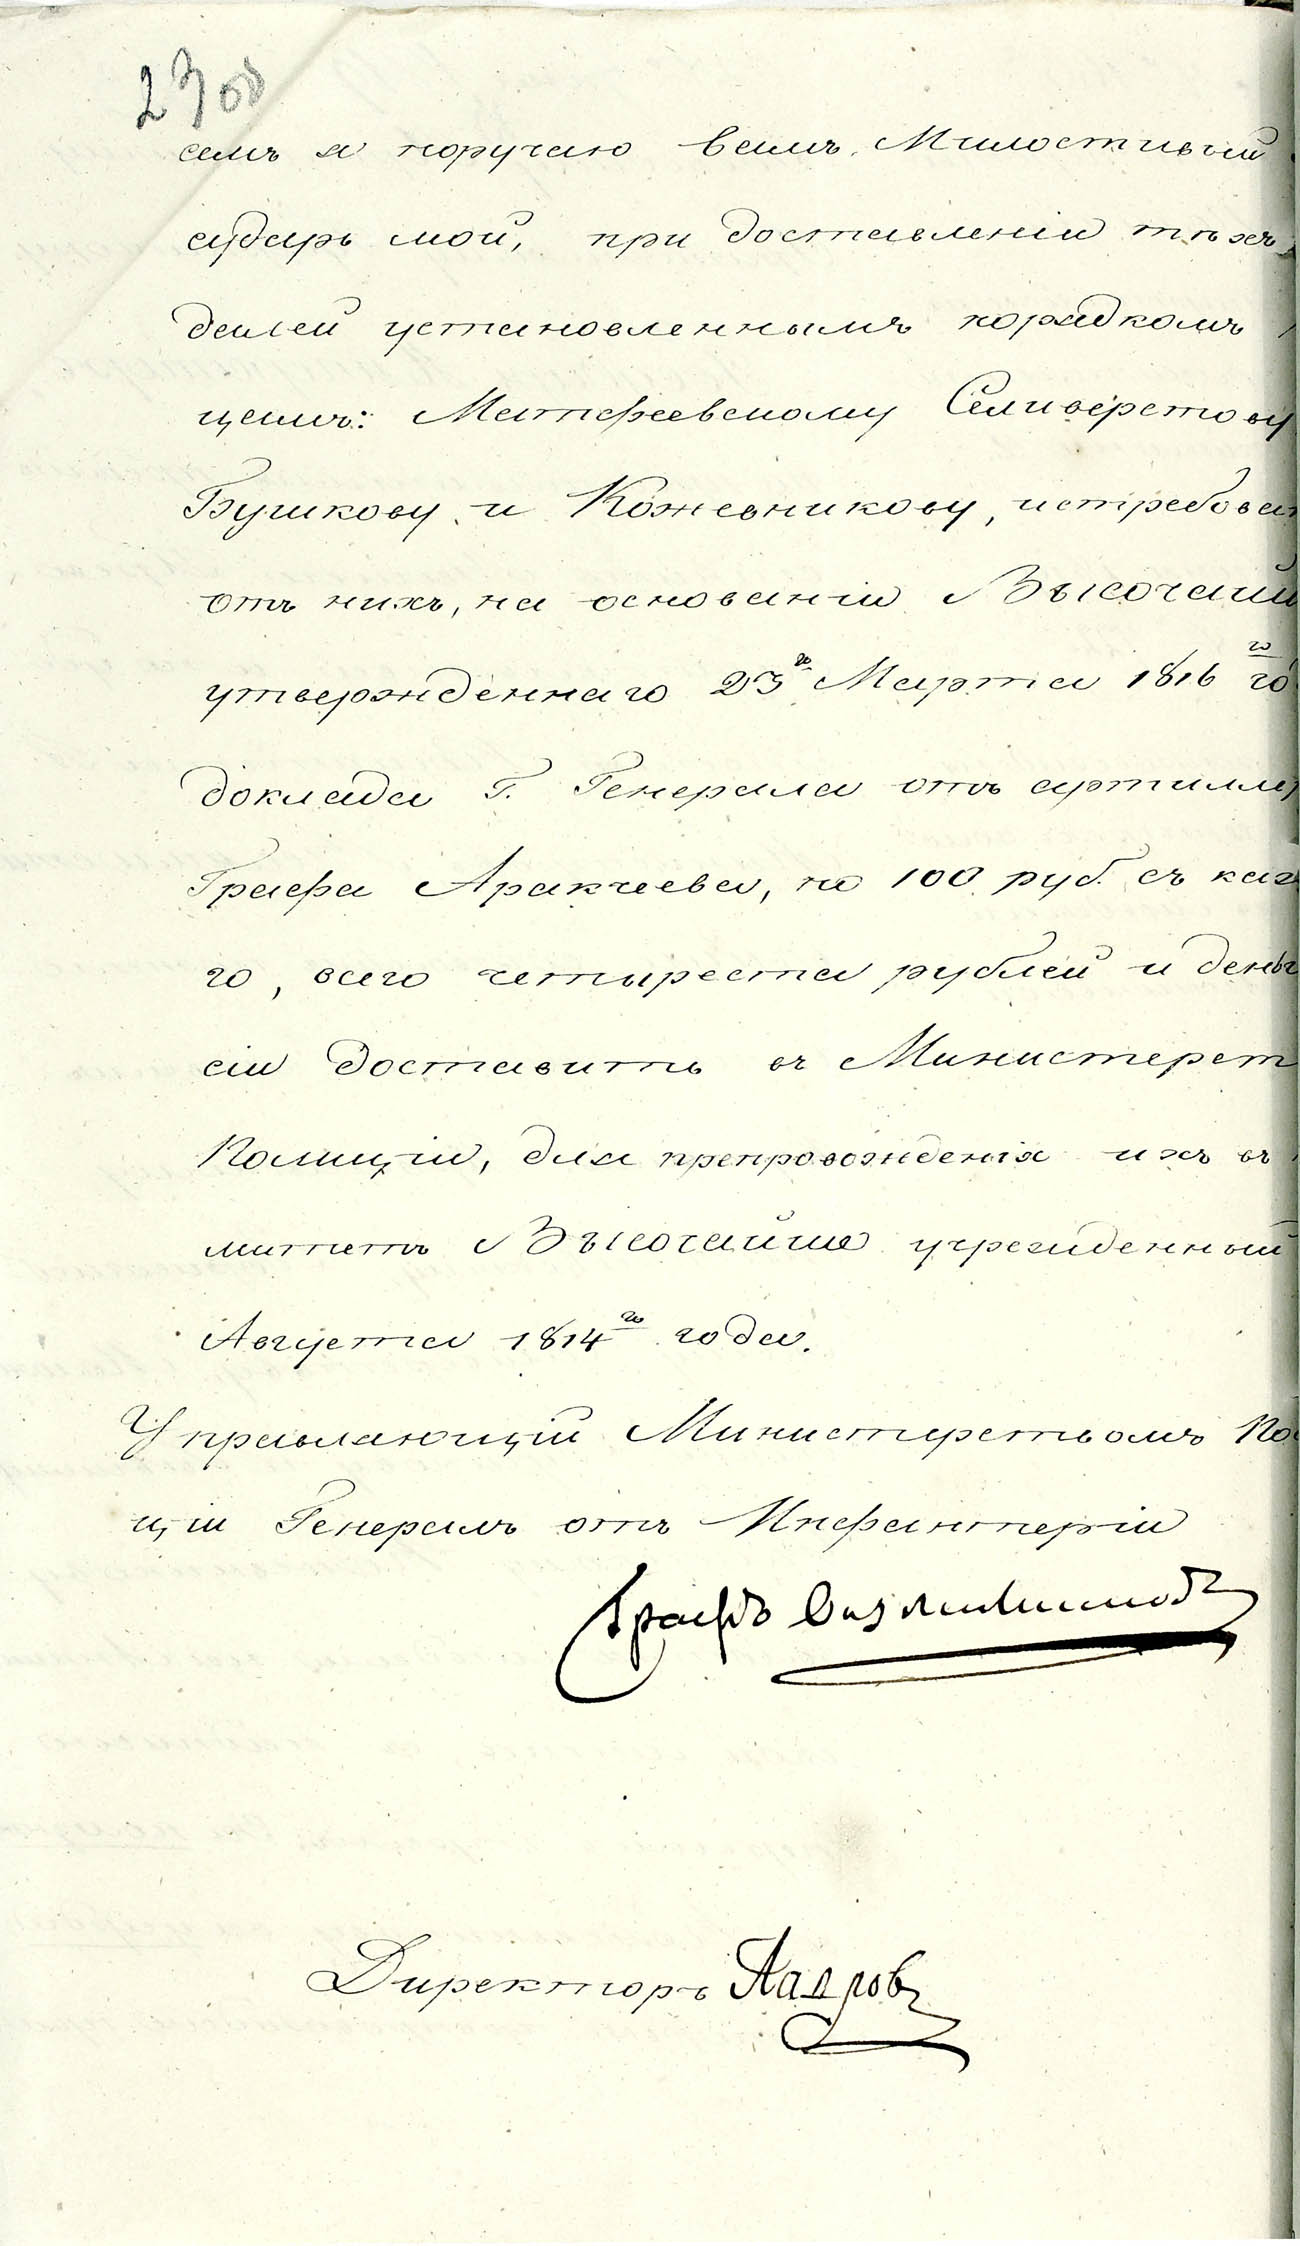 23 об
семъ я поручаю вамъ, Милостивый
сударь мой, при доставленіи тѣхъ
далей установленнымъ порядкомъ
цамъ: Матфеевскому Селиверстову
Бушкову и Кожевникову, истребова
отъ нихъ, на основаніи Высочай
утвержденнаго 23го Марта 1816го го
доклада Г. Генерала отъ артилле
Графа Аракчеева, по 100 руб. съ каж
го, всего четыреста рублей и деньг
сіи доставить въ Министерст
Полиціи, для препровожденія ихъ въ
митетъ Высочайше учрежденный
Августа 1814го года.
Управляющій Министерствомъ По
ціи Генералъ отъ Инфантеріи
Графъ Вязмитиновъ
Директоръ Лавровъ